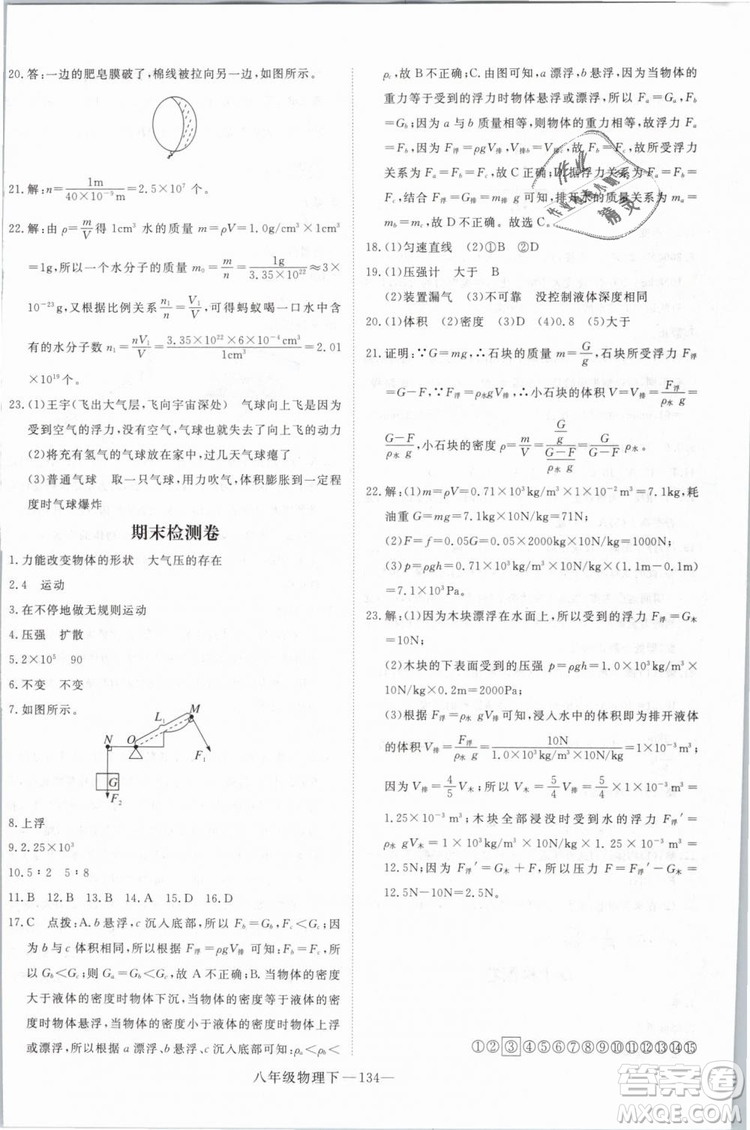 20.答：一边的肥皂膜破了，棉线被拉向另一边，如图所示。
21.解：n=1m/40×10⁻⁹m=2.5×10⁷ 个。
22.解：由 ρ=m/V得 1cm³ 水的质量 m=ρV=1.0g/cm³×1cm³
=1g,所以一个水分子的质量 m₀=m/n=1g/3.35×10²²≈3×
10⁻²³g,又根据比例关系n₁/n=V₁/V,可得蚂蚁喝的水中含
有的水分子数 n₁=nV₁/V=3.35×10²²×6×10⁻⁴cm³/1cm³=2.01
×10¹⁹个。
23.(1)王宇(飞出大气层,飞向宇宙深处) 气球向上飞是因为
受到空气的浮力,没有空气,气球也就失去了向上飞的动力
(2)将充有氢气的气球放在家中,过几天气球瘪了
(3)普通气球 取一只气球,用力吹气,体积膨胀到一定程
度时气球爆炸
期末检测卷
1.力能改变物体的形状 大气压的存在
2.4 运动
3.在不停地做无规则运动
4.压强 扩散
5.2×10⁵ 90
6.不变 不变
7.如图所示。
L₁ M
N O
F₁
G
F₂
8.上浮
9.2.25×10³
10.5∶2 5∶8
11.B 12.B 13.D 14.A 15.D 16.D
17.C 点拨:A.b悬浮,c沉入底部,所以 Fb=Gb,Fc<Gc;因
为b与c体积相同,所以根据 F浮=ρgV排 可知:Fb=Fc,所
以 Gb<Gc,mb<mc,故 A 不正确;B.当物体的密度
大于液体的密度时物体下沉,当物体的密度等于液体的
密度时物体悬浮,当物体的密度小于液体的密度时上浮
或漂浮,所以,由三个小球的状态可知:ρa<ρb,ρb<
ρc,故 B 不正确;C.由图可知,a漂浮,b悬浮,因为当物体的
重力等于受到的浮力时物体悬浮或漂浮,所以 Fa=Ga,Fb
=Gb;因为a与b质量相等,则物体的重力相等,故浮力
关系为 Fa=Fb,故 C 正确;D.据浮力关系为 Fa=Fb
=Fc,结合 F浮=G排 可知,排开水的质量关系为 ma=
mb=mc,故 D 不正确。故选 C。
18.(1)匀速直线 (2)①B ②D
19.(1)压强计 大于 B
(2)装置漏气 (3)不可靠 没控制液体深度相同
20.(1)体积 (2)密度 (3)D (4)0.8 (5)大于
21.证明:∵G=mg,∴石块的质量 m=G/g,石块所受浮力 F浮
=G-F,∵F浮=ρ水gV排,∴小石块的体积 V=F浮/ρ水g=
G-F/ρ水g,小石块的密度 ρ=m/V=(G/g)/(G-F/ρ水g)=G/G-Fρ水。
22.解:(1)m=ρV=0.71×10³kg/m³×10⁻²m³=7.1kg,耗
油重 G=mg=7.1kg×10N/kg=71N。
(2)F=f=0.05G车=0.05×20000N=1000N。
(3)p=ρgh=0.71×10³kg/m³×10N/kg×(1.1m-0.1m)
=7.1×10³Pa。
23.解:(1)因为木块漂浮在水面上,所以受到的浮力 F浮=G木
=10N;
(2)木块的下表面受到的压强 p=ρgh=1.0×10³kg/m³×
10N/kg×0.2m=2000Pa;
(3)根据 F浮=ρ水gV排 可知,浸入水中的体积即为排开液体
的体积 V排=F浮/ρ水g=10N/1.0×10³kg/m³×10N/kg=1×10⁻³m³
因为 V排=4/5V木,所以 V木=5/4V排=5/4×1×10⁻³m³=
1.25×10⁻³m³;木块全部浸没时受到水的浮力
F浮′=ρ水gV木=1.0×10³kg/m³×10N/kg×1.25×10⁻³m³=
12.5N;因为 F浮′=G木+F,所以压力 F=F浮′-G木=
12.5N-10N=2.5N。
①②③④⑤⑥⑦⑧⑨⑩⑪⑫⑬⑭⑮
八年级物理下—134—
作业
作业检查小助手
精灵
答案圈
MXQE.COM